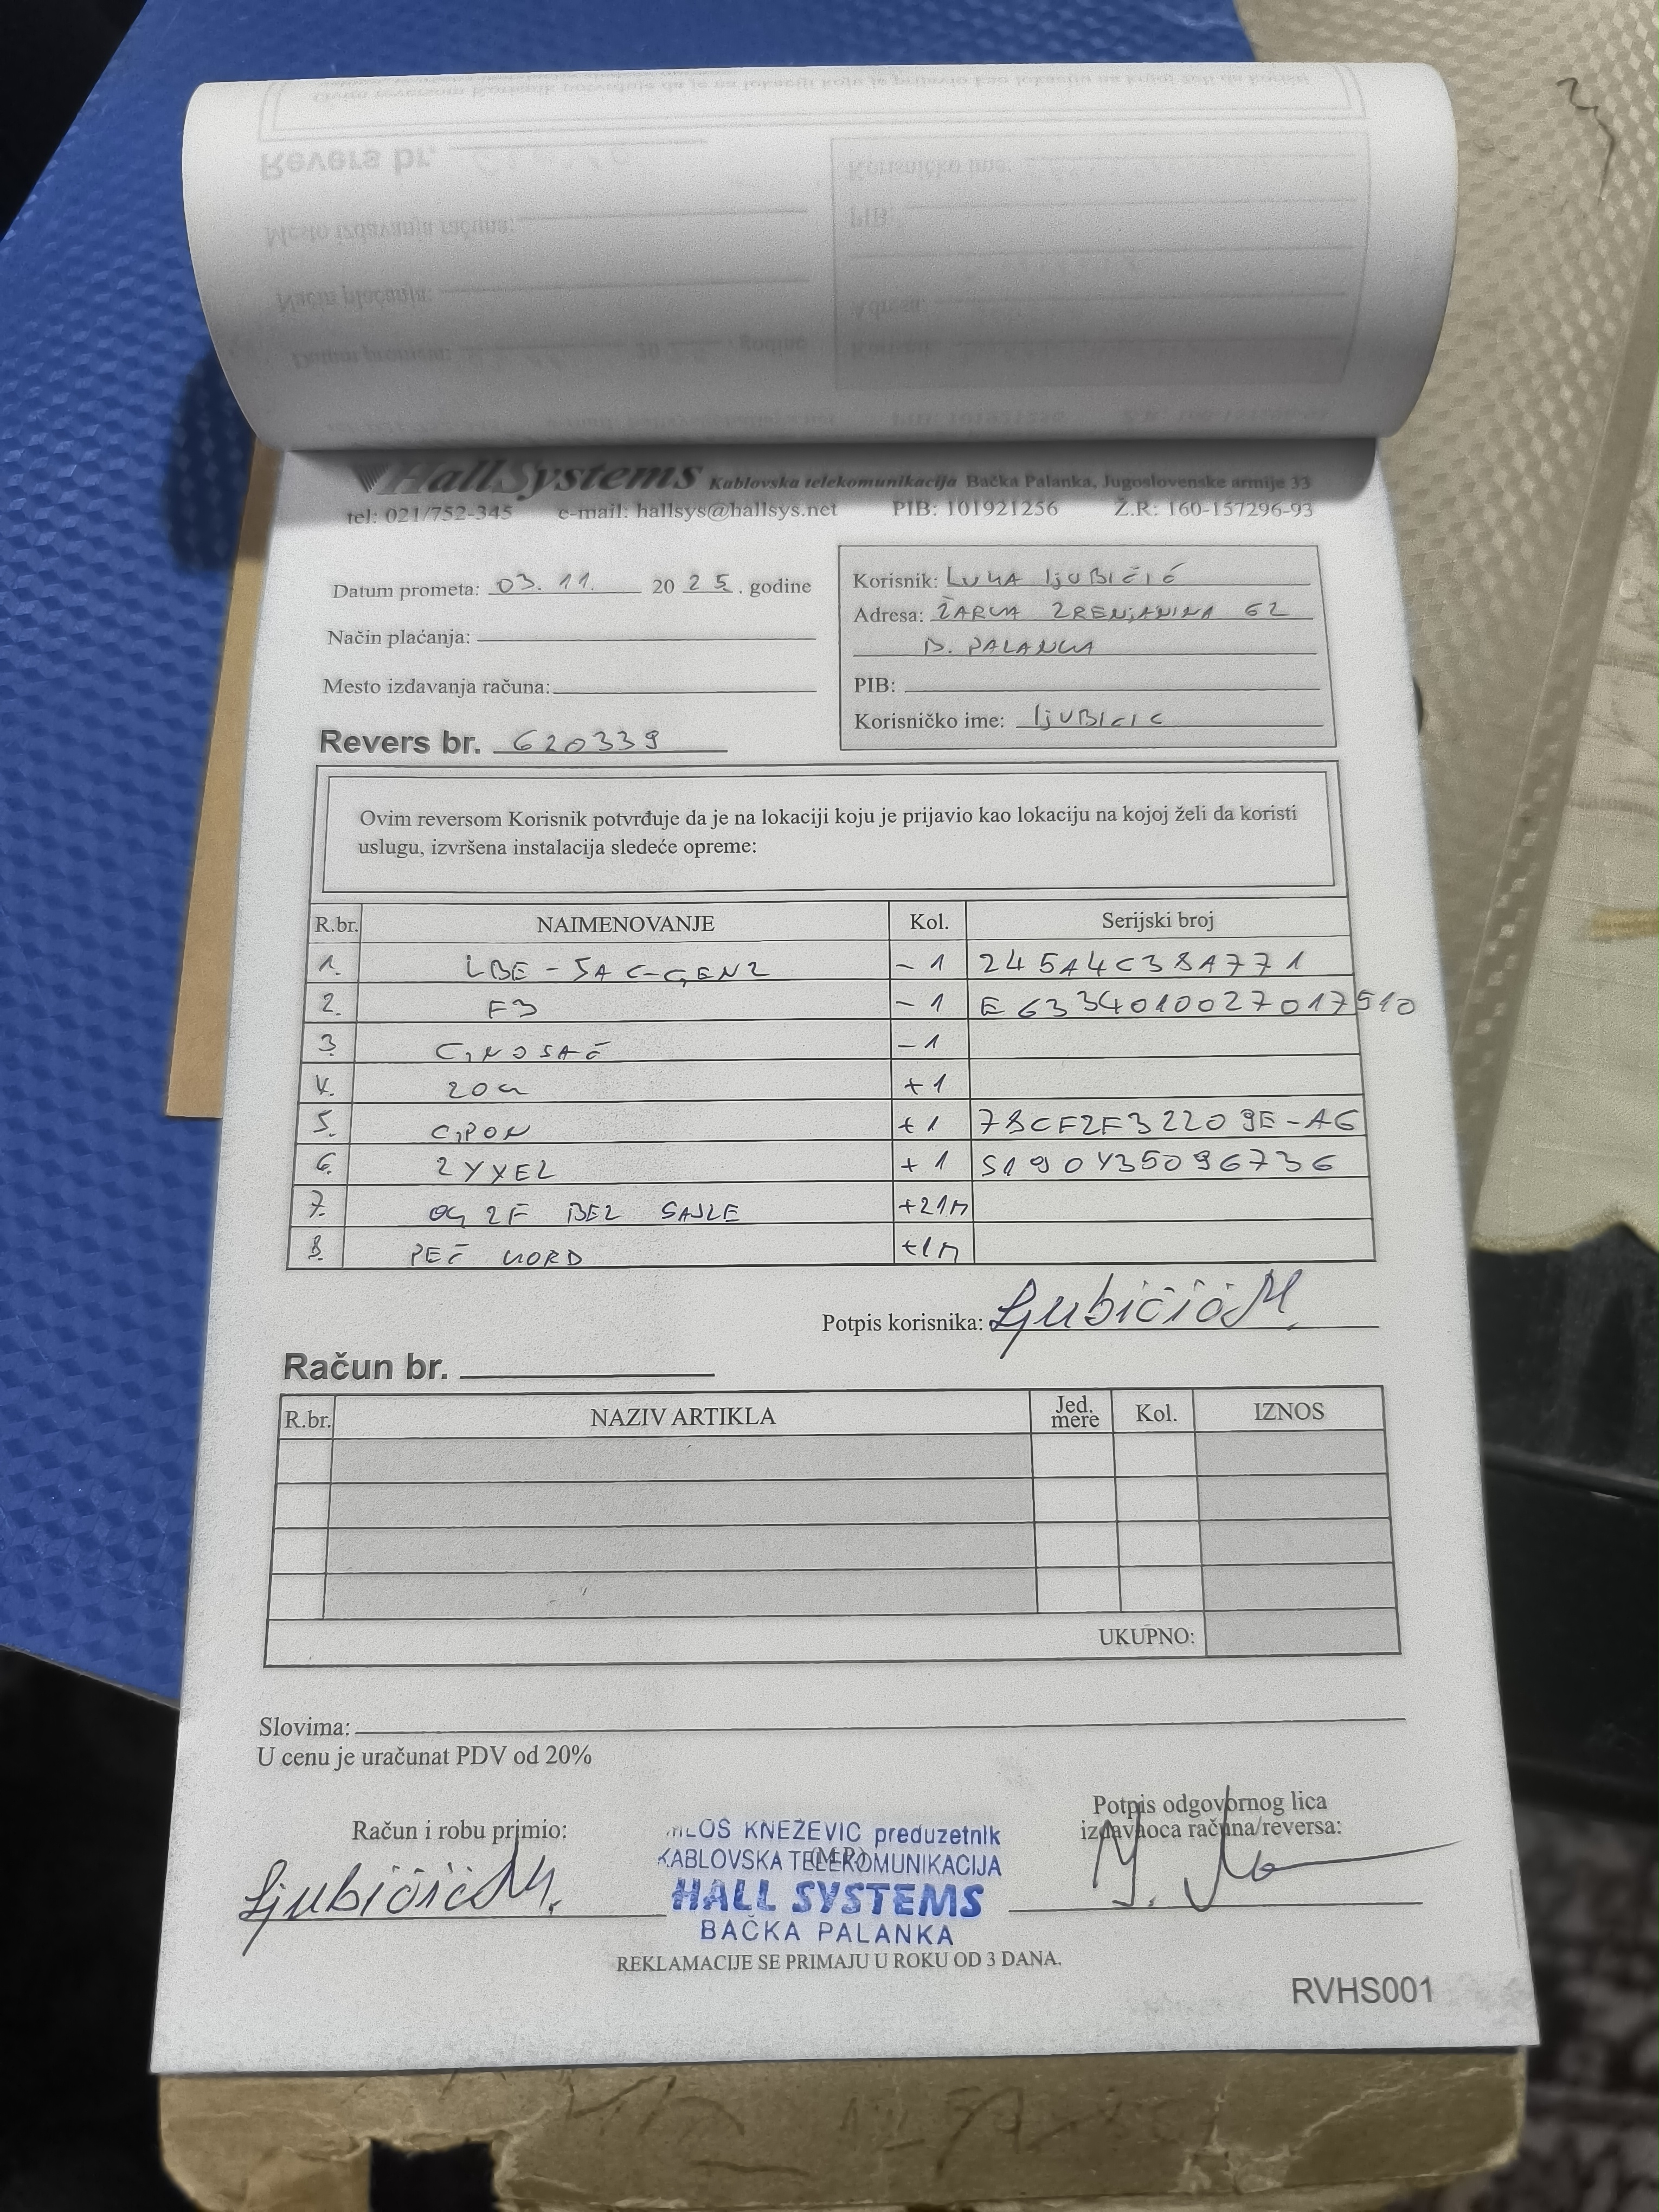 HallSystems Kablovska telekomunikacija Bačka Palanka, Jugoslovenske armije 33
tel: 021/752-345 e-mail: hallsys@hallsys.net PIB: 101921256 Ž.R: 160-157296-93
Datum prometa: 03. 11. 20 25. godine
Način plaćanja:
Mesto izdavanja računa:
Revers br. 620339
Korisnik: LUKA ljUBIČIĆ
Adresa: ŽARKA ZRENJANINA 62
B. PALANKA
PIB:
Korisničko ime: ljUBICIC
Ovim reversom Korisnik potvrđuje da je na lokaciji koju je prijavio kao lokaciju na kojoj želi da koristi
uslugu, izvršena instalacija sledeće opreme:
R.br. NAIMENOVANJE Kol. Serijski broj
1. LBE - 5AC-GEN2 - 1 245A4C38A771
2. F3 - 1 E6334010027017510
3. G,NOSAČ - 1
4. + 1
5. G,PON + 1 78CF2F32209E-A6
6. ZYXEL + 1 S190Y35096736
7. OG 2F BEZ SAJLE +21M
8. PEČ KORD +1M
Potpis korisnika: Ljubičić M.
Račun br.
R.br. NAZIV ARTIKLA Jed. mere Kol. IZNOS
UKUPNO:
Slovima:
U cenu je uračunat PDV od 20%
Račun i robu primio:
Ljubičić M.
MILOŠ KNEŽEVIĆ preduzetnik
KABLOVSKA TELEKOMUNIKACIJA
(M.P.)
HALL SYSTEMS
BAČKA PALANKA
Potpis odgovornog lica
izdavaoca računa/reversa:
REKLAMACIJE SE PRIMAJU U ROKU OD 3 DANA.
RVHS001